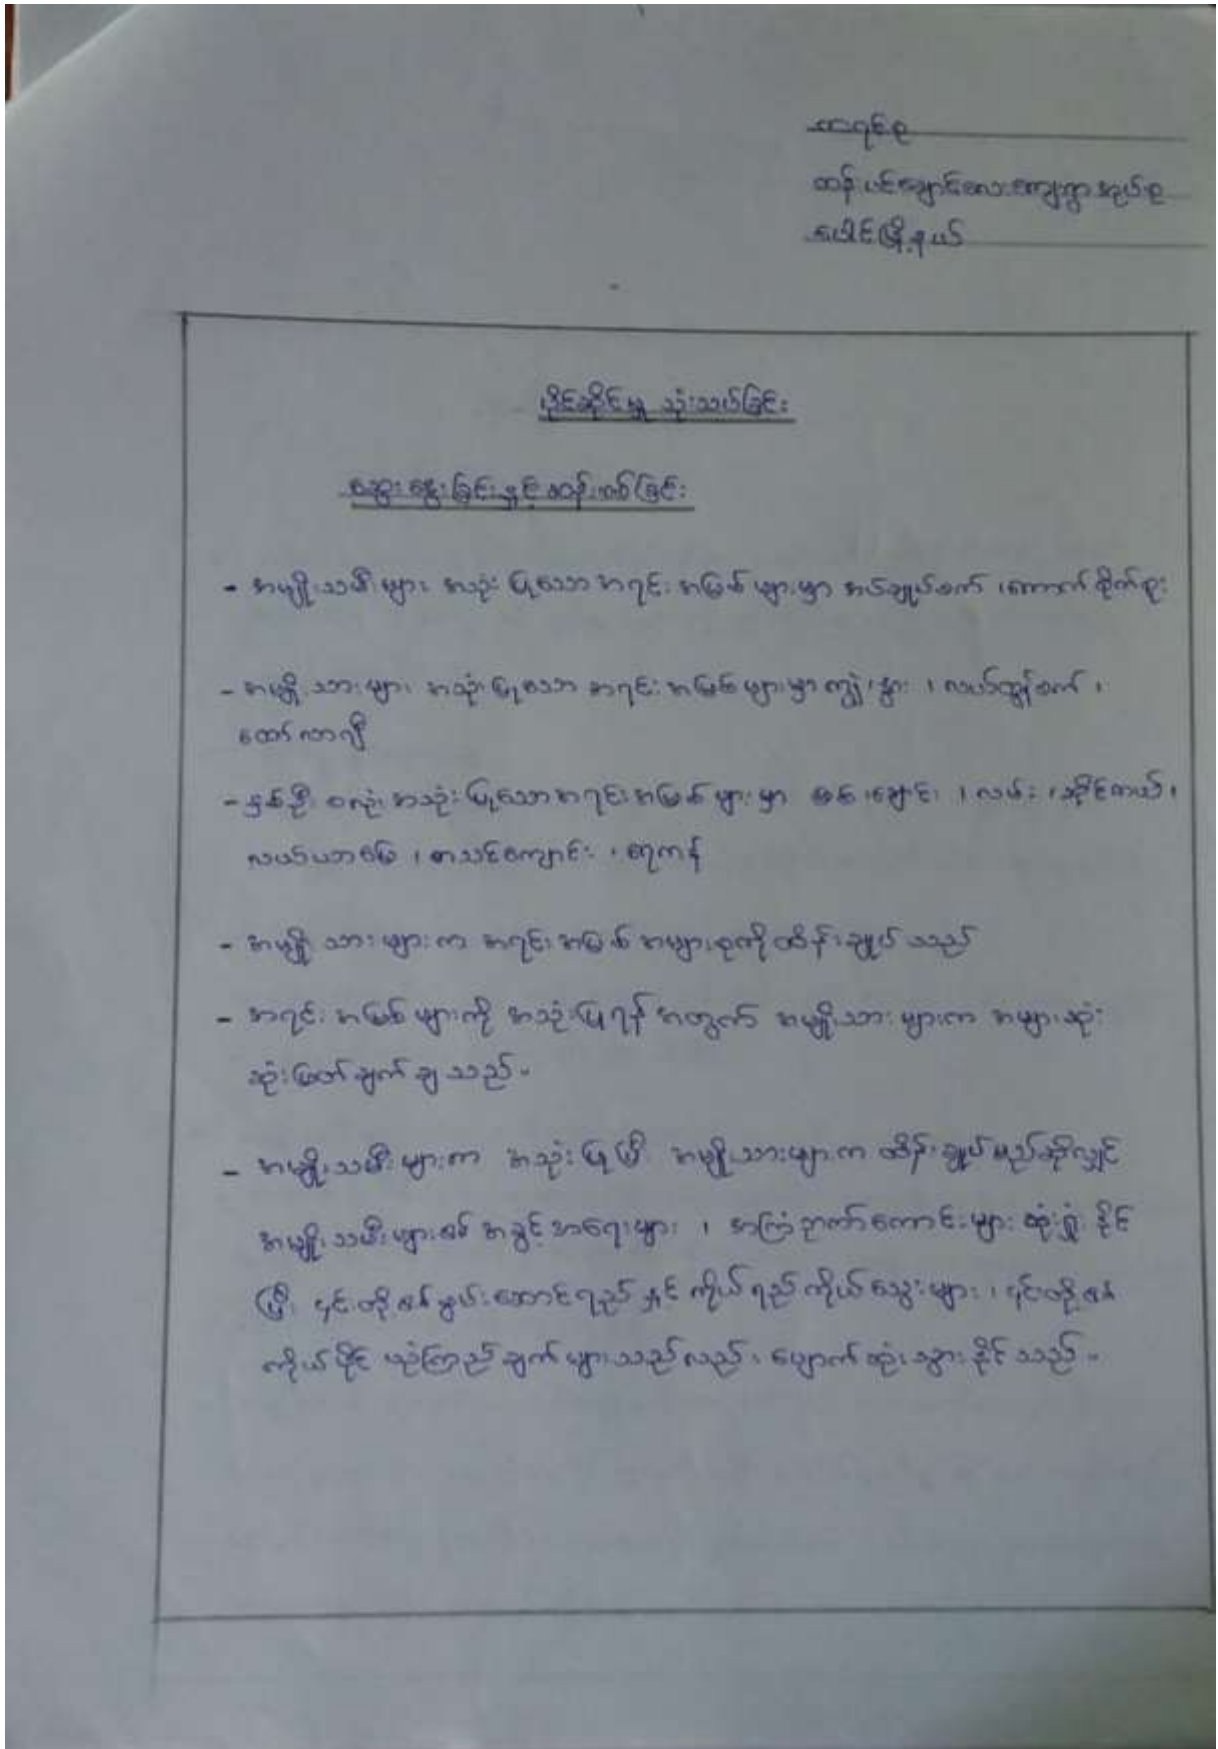 ကရင်စု
ထန်းပင်ချောင်လေးကျေးရွာအုပ်စု
ပေါင်မြို့နယ်
ပိုင်ဆိုင်မှု သုံးသပ်ခြင်း
ဆွေးနွေးခြင်းနှင့်ဆန်းစစ်ခြင်း
- အမျိုးသမီးများ အသုံးပြုသောအရင်းအမြစ်များမှာ အပ်ချုပ်စက် ၊ကောက်စိုက်စူး
- အမျိုးသားများ အသုံးပြုသော အရင်းအမြစ်များမှာကျွဲ၊နွား ၊ လယ်ထွန်စက် ၊
ထော်လာဂျီ
- နှစ်ဦးစလုံး အသုံးပြုသောအရင်းအမြစ်များမှာ မြစ်၊ချောင်း ၊လမ်း ၊ဆိုင်ကယ်၊
လယ်ယာမြေ ၊ စာသင်ကျောင်း ၊ ရေကန်
- အမျိုးသားများက အရင်းအမြစ် အများစုကိုထိန်းချုပ်သည်
- အရင်းအမြစ်များကို အသုံးပြုရန်အတွက် အမျိုးသားများက အများဆုံး
ဆုံးဖြတ်ချက်ချသည်။
- အမျိုးသမီးများက အသုံးပြုပြီး အမျိုးသားများက ထိန်းချုပ်မည်ဆိုလျှင်
အမျိုးသမီးများ၏ အခွင့်အရေးများ ၊ အကြံဉာဏ်ကောင်းများ ဆုံးရှုံးနိုင်
ပြီး ၎င်းတို့၏စွမ်းဆောင်ရည် နှင့် ကိုယ်ရည်ကိုယ်သွေးများ ၊ ၎င်းတို့၏
ကိုယ်ပိုင် ယုံကြည်ချက်များသည်လည်း ပျောက်ဆုံးသွားနိုင်သည်။